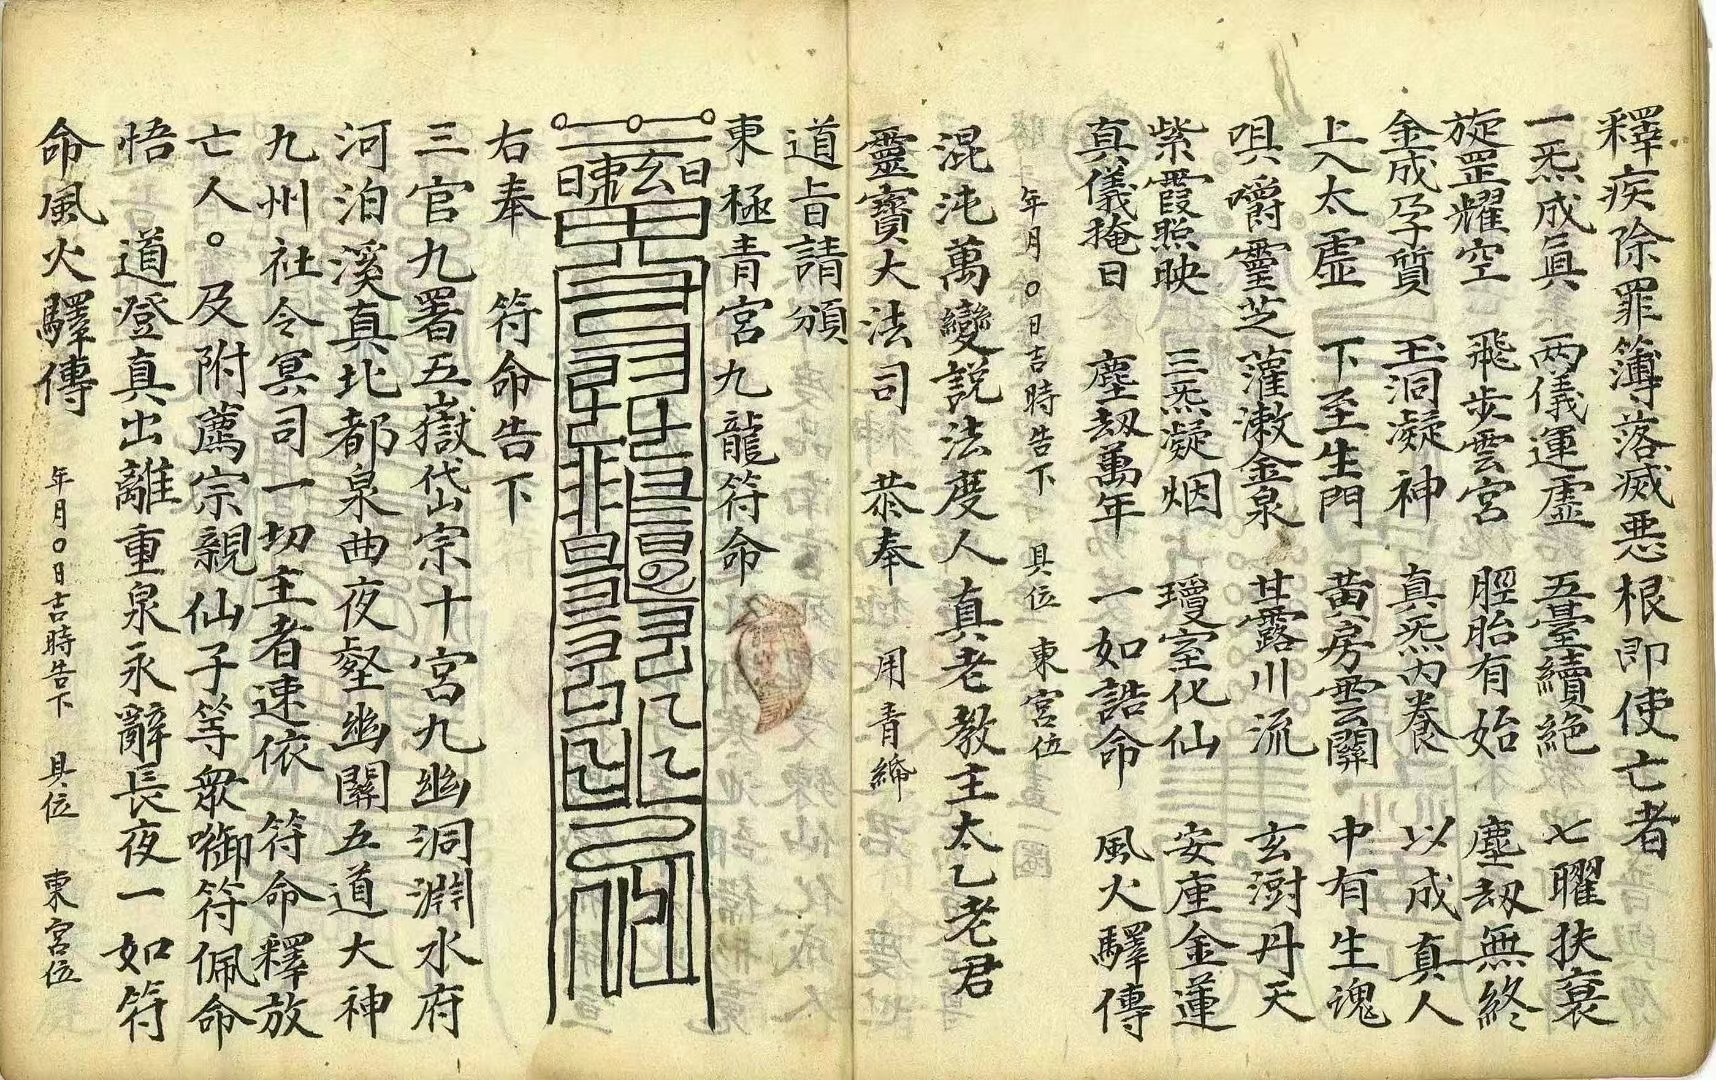 釋疾除罪簿落滅惡根即使亡者
一炁成真 兩儀運虛 五臺續絕 七曜扶衰
旋罡耀空 飛步雲宮 脛胎有始 塵劫無終
金成孕質 玉洞凝神 真炁內養 以成真人
上入太虛 下至生門 黃房雲關 中有生魂
唄嚼靈芝 灌漱金泉 甘露川流 玄澍丹天
紫霞照映 三炁凝烟 瓊室化仙 安座金蓮
真儀掩日 塵劫萬年 一如誥命 風火驛傳
年月〇日吉時告下 具位 東宮位
混沌萬變說法度人真老教主太乙老君
靈寶大法司 恭奉 用青締
道旨請頒
東極青宮九龍符命
玄 日
日
右奉 符命告下
三官九署五嶽代山宗十宮九幽洞淵水府
河泊溪真北都泉曲夜壑幽關五道大神
九州社令冥司一切主者速依 符命釋放
亡人。及附薦宗親仙子等眾啣符佩命
悟 道登真出離重泉永辭長夜一如符
命風火驛傳 年月〇日吉時告下 具位 東宮位